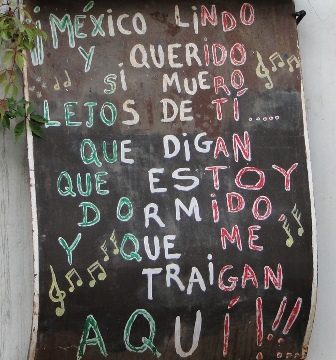 ¡¡MÉXICO LiNDO
Y QUERIDO
Si MUERO
LEJOS DE TÍ.....
QUE DiGAN
QUE ESTOY
DORMiDO,
Y QUE ME
TRAiGAN
AQUÍ!!!